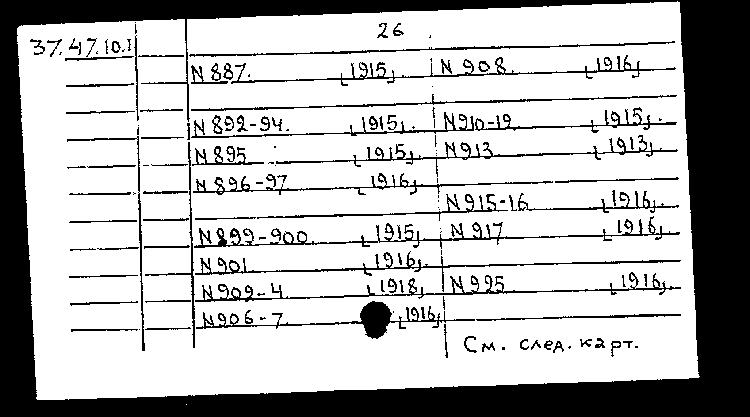 26
37.47.10.1
N 887. [1915]
N 892-94. [1915].
N 895 [1915].
N 896-97 [1916]
N 899-900. [1915]
N 901. [1916].
N 902-4. [1918]
N 906-7. [1916]
N 908. [1916]
N 910-12. [1915].
N 913 [1913].
N 915-16. [1916].
N 917 [1916]
N 925 [1916]
См. след. карт.